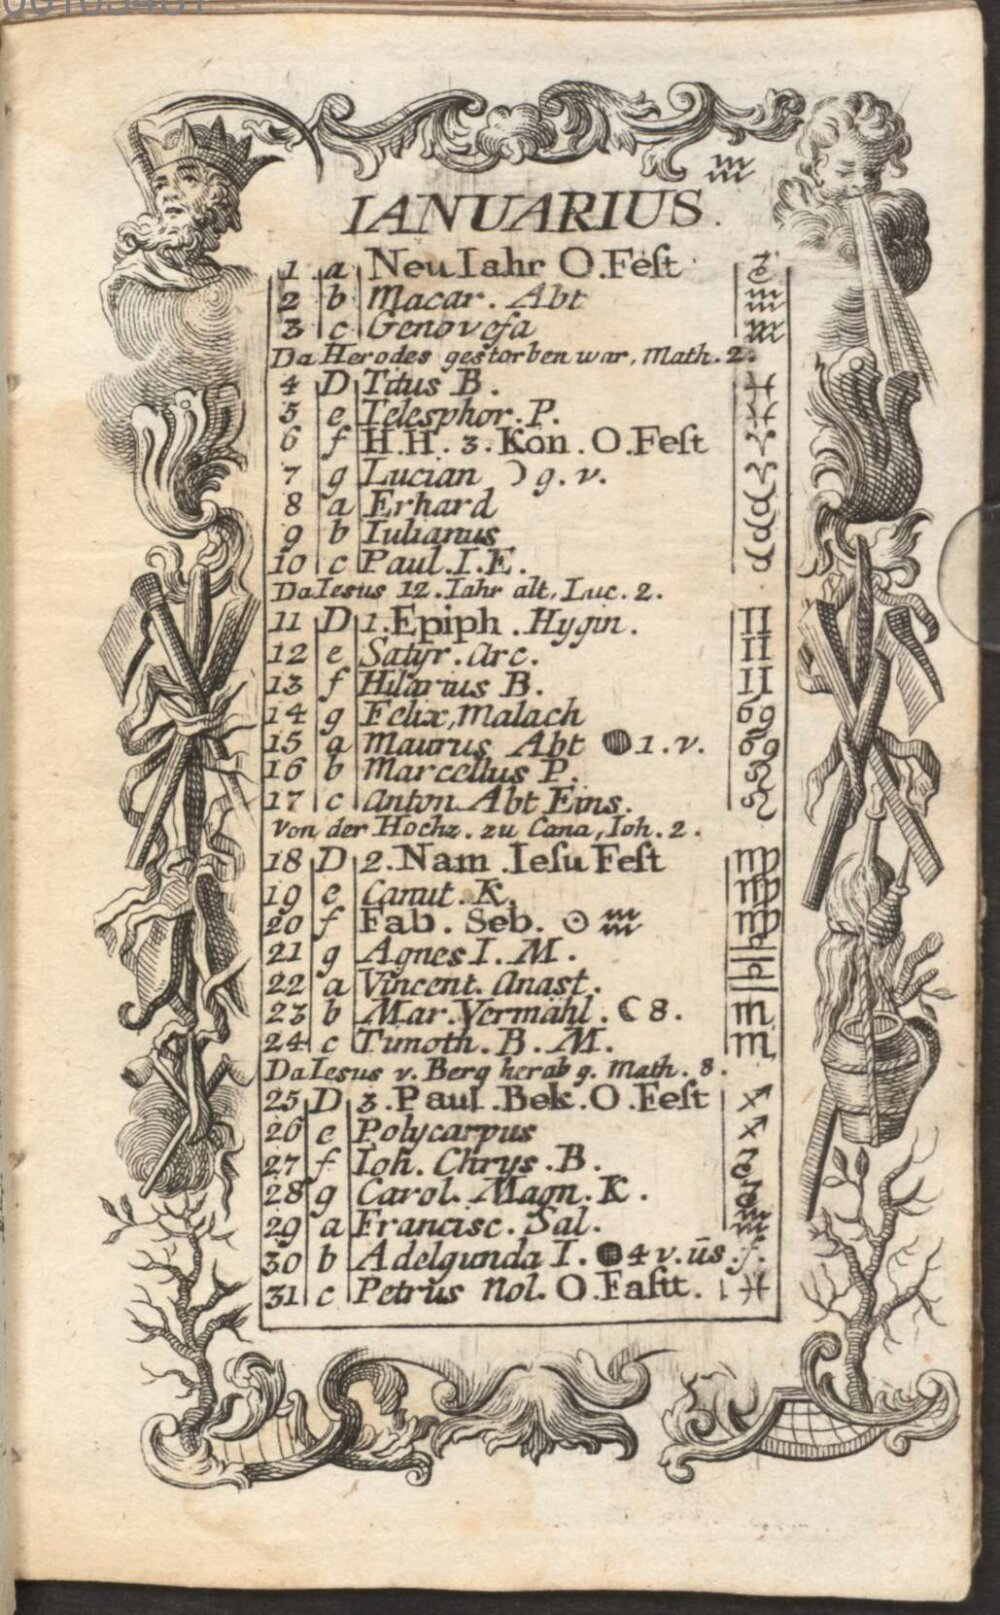 ♒
IANUARIUS.
1 a Neu Iahr O. Feſt ♑
2 b Macar. Abt ♒
3 c Genovefa ♒
Da Herodes gestorben war, Math. 2.
4 D Titus B. ♓
5 e Telesphor. P. ♓
6 f H.H. 3. Kön. O. Feſt ♈
7 g Lucian ☽ 9. v. ♈
8 a Erhard ♉
9 b Iulianus ♉
10 c Paul. I. E. ♉
Da Iesus 12. Iahr alt, Luc. 2.
11 D 1. Epiph. Hygin. ♊
12 e Satyr. Arc. ♊
13 f Hilarius B. ♊
14 g Felix, Malach ♋
15 a Maurus Abt ● 1. v. ♋
16 b Marcellus P. ♌
17 c Anton Abt Eins. ♌
Von der Hochz. zu Cana, Ioh. 2.
18 D 2. Nam. Ieſu Feſt ♍
19 e Canut. K. ♍
20 f Fab. Seb. ☉ ♒ ♍
21 g Agnes I. M. ♎
22 a Vincent. Anast. ♎
23 b Mar. Vermähl. ☾ 8. ♏
24 c Timoth. B. M. ♏
Da Iesus v. Berg herab g. Math. 8.
25 D 3. Paul. Bek. O. Feſt ♐
26 e Polycarpus ♐
27 f Ioh. Chrys. B. ♑
28 g Carol. Magn. K. ♑
29 a Francisc. Sal. ♒
30 b Adelgunda I. ● 4 v. ūs. f.
31 c Petrus Nol. O. Faſtt. ♓